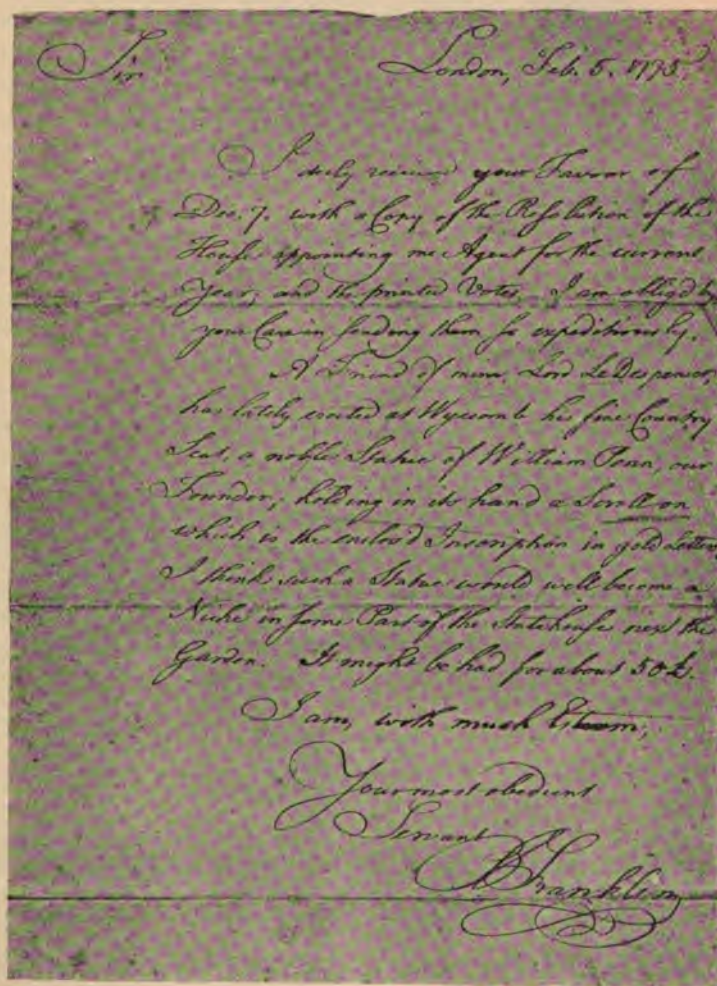 Sir
London, Feb. 5. 1775.
I duly received your Favour of
Dec. 7. with a Copy of the Resolution of the
House appointing me Agent for the current
Year, and the printed Votes. I am oblig'd by
your Care in sending them so expeditiously.
A Friend of mine, Lord Le Despencer,
has lately erected at Wycomb his fine Country
Seat, a noble Statue of William Penn, our
Founder, holding in its hand a Scroll on
which is the enclos'd Inscription in gold Letters
I think such a Statue would well become a
Niche in some Part of the Statehouse next the
Garden. It might be had for about 50£.
I am, with much Esteem,
Your most obedient
Servant
B Franklin